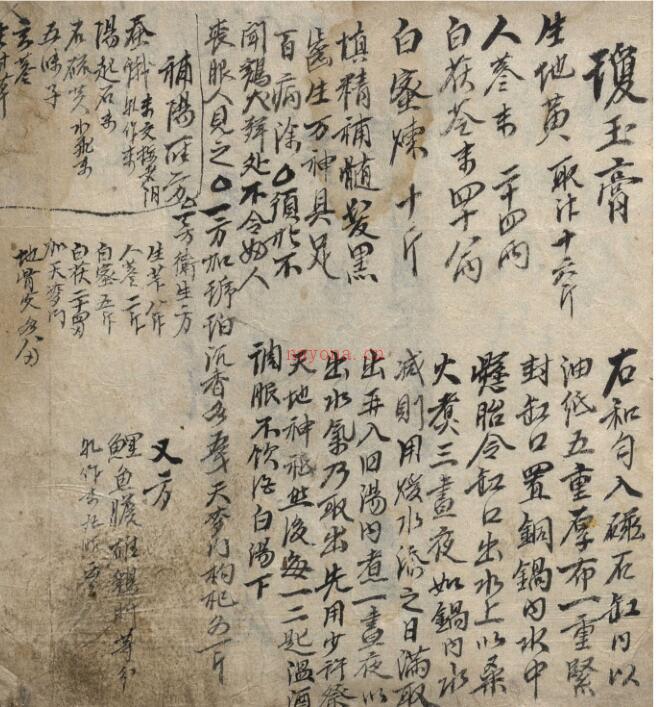 瓊玉膏
生地黃 取汁十六斤
人蔘末 二十四兩
白茯苓末四十八兩
白蜜煉 十斤
填精補髓髮黑
齒生万神具足
百病除〇須於不
聞鷄犬聲处不令婦人
喪服人見之〇一方加琥珀沉香各五錢天麥門枸杞各一斤
右和勻入磁石缸內以
油紙五重厚布一重緊
封缸口置銅鍋內水中
懸胎令缸口出水上以桑
火煮三晝夜如鍋內水
減則用煖水添之日滿取
出再入旧湯內煮一晝夜以
出水氣乃取出先用少許祭
天地神祗然後每一二匙溫酒
調服不飲酒白湯下
衛生方
人蔘二斤
白蜜五斤
白茯二十四
加天麥門
地骨皮各八
補陽
陽起石末
石硫黃水飛末
五味子
又方
鯉魚膽雄鷄肝等分
nayona.cn